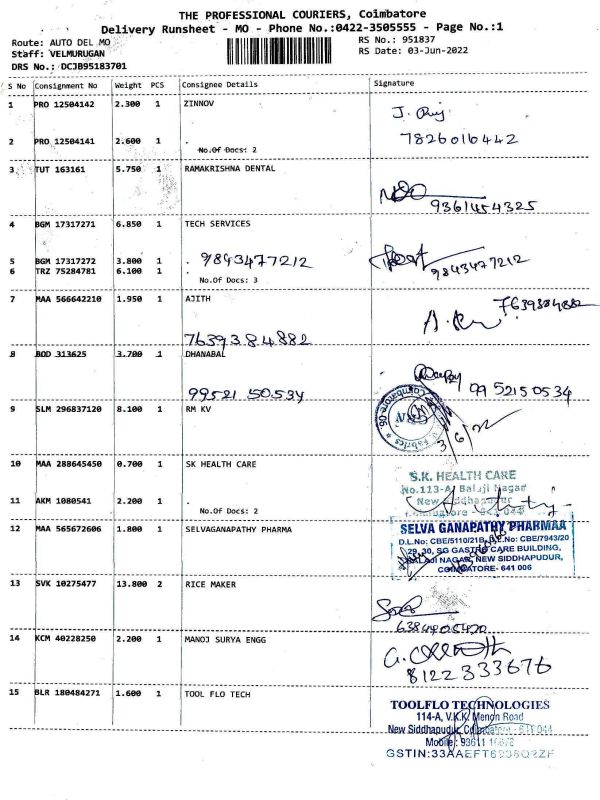 THE PROFESSIONAL COURIERS, Coimbatore
Delivery Runsheet - MO - Phone No.:0422-3505555 - Page No.:1
Route: AUTO DEL MO
RS No.: 951837
Staff: VELMURUGAN
RS Date: 03-Jun-2022
DRS No.: DCJB95183701
S No Consignment No Weight PCS Consignee Details Signature
1 PRO 12504142 2.300 1 ZINNOV
J.
7826016442
2 PRO 12504141 2.600 1 .
No.Of Docs: 2
3 TUT 163161 5.750 1 RAMAKRISHNA DENTAL
9361454325
4 BGM 17317271 6.850 1 TECH SERVICES
5 BGM 17317272 3.800 1 . 9843477212
9843477212
6 TRZ 75284781 6.100 1 .
No.Of Docs: 3
7 MAA 566642210 1.950 1 AJITH
7639384882
7639384882
8 BOD 313625 3.700 1 DHANABAL
99521 50534
99 5215 0534
9 SLM 296837120 8.100 1 RM KV
3/6/22
10 MAA 288645450 0.700 1 SK HEALTH CARE
S.K. HEALTH CARE
No.113-A, Balaji Nagar
New Siddhapudur
Coimbatore - 641 044
11 AKM 1080541 2.200 1 .
No.Of Docs: 2
12 MAA 565672606 1.800 1 SELVAGANAPATHY PHARMA
SELVA GANAPATHY PHARMAA
D.L.No: CBE/5110/21B, No: CBE/7943/20
29, 30, SG GASTRO CARE BUILDING,
BALAJI NAGAR, NEW SIDDHAPUDUR,
COIMBATORE- 641 006
13 SVK 10275477 13.800 2 RICE MAKER
14 KCM 40228250 2.200 1 MANOJ SURYA ENGG
8122333676
15 BLR 180484271 1.600 1 TOOL FLO TECH
TOOLFLO TECHNOLOGIES
114-A, V.K.K. Menon Road
New Siddhapudur, Coimbatore - 641 044
Mobile: 93611